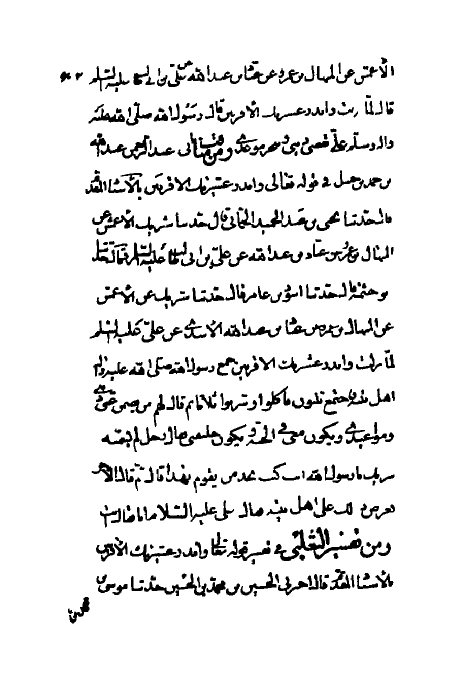 الأعمش عن المنهال بن عمرو عن عباد بن عبد الله عن علي بن ابي طالب عليه السلم
قال لما نزلت وانذر عشيرتك الاقربين قال رسول الله صلى الله عليه
واله وسلم علي يقضي ديني وينجز موعدي ومن عبد الرحمن عبد الله
بن احمد بن حنبل في قوله تعالى وانذر عشيرتك الاقربين بالاسناد المقدم
قال حدثنا يحيى بن عبد الحميد الحماني قال حدثنا شريك عن الاعمش عن
المنهال بن عمرو عن عباد بن عبد الله عن علي بن ابي طالب عليه السلم
بو خيثمة قال حدثنا اسود بن عامر قال حدثنا شريك عن الاعمش
عن المنهال بن عمرو عن عباد بن عبد الله الاسدي عن علي عليه السلم
لما نزلت وانذر عشيرتك الاقربين جمع رسول الله صلى الله عليه واله
اهل بيته فاجتمع ثلثون فاكلوا وشربوا ثلاثا ثم قال لهم من يضمن عني ديني
ومواعيدي ويكون معي في الجنة ويكون خليفتي فقال رجل لم يسمه
شريك يا رسول الله انت كنت بحرا من يقوم بهذا قال ثم قال لاخر
فعرض ذلك على اهل بيته فقال علي عليه السلام انا فقال انت
ومن تفسير الثعلبي في تفسير قوله تعالى وانذر عشيرتك الاقربين
بالاسناد المقدم قال اخبرني الحسين بن محمد بن الحسين حدثنا موسى بن